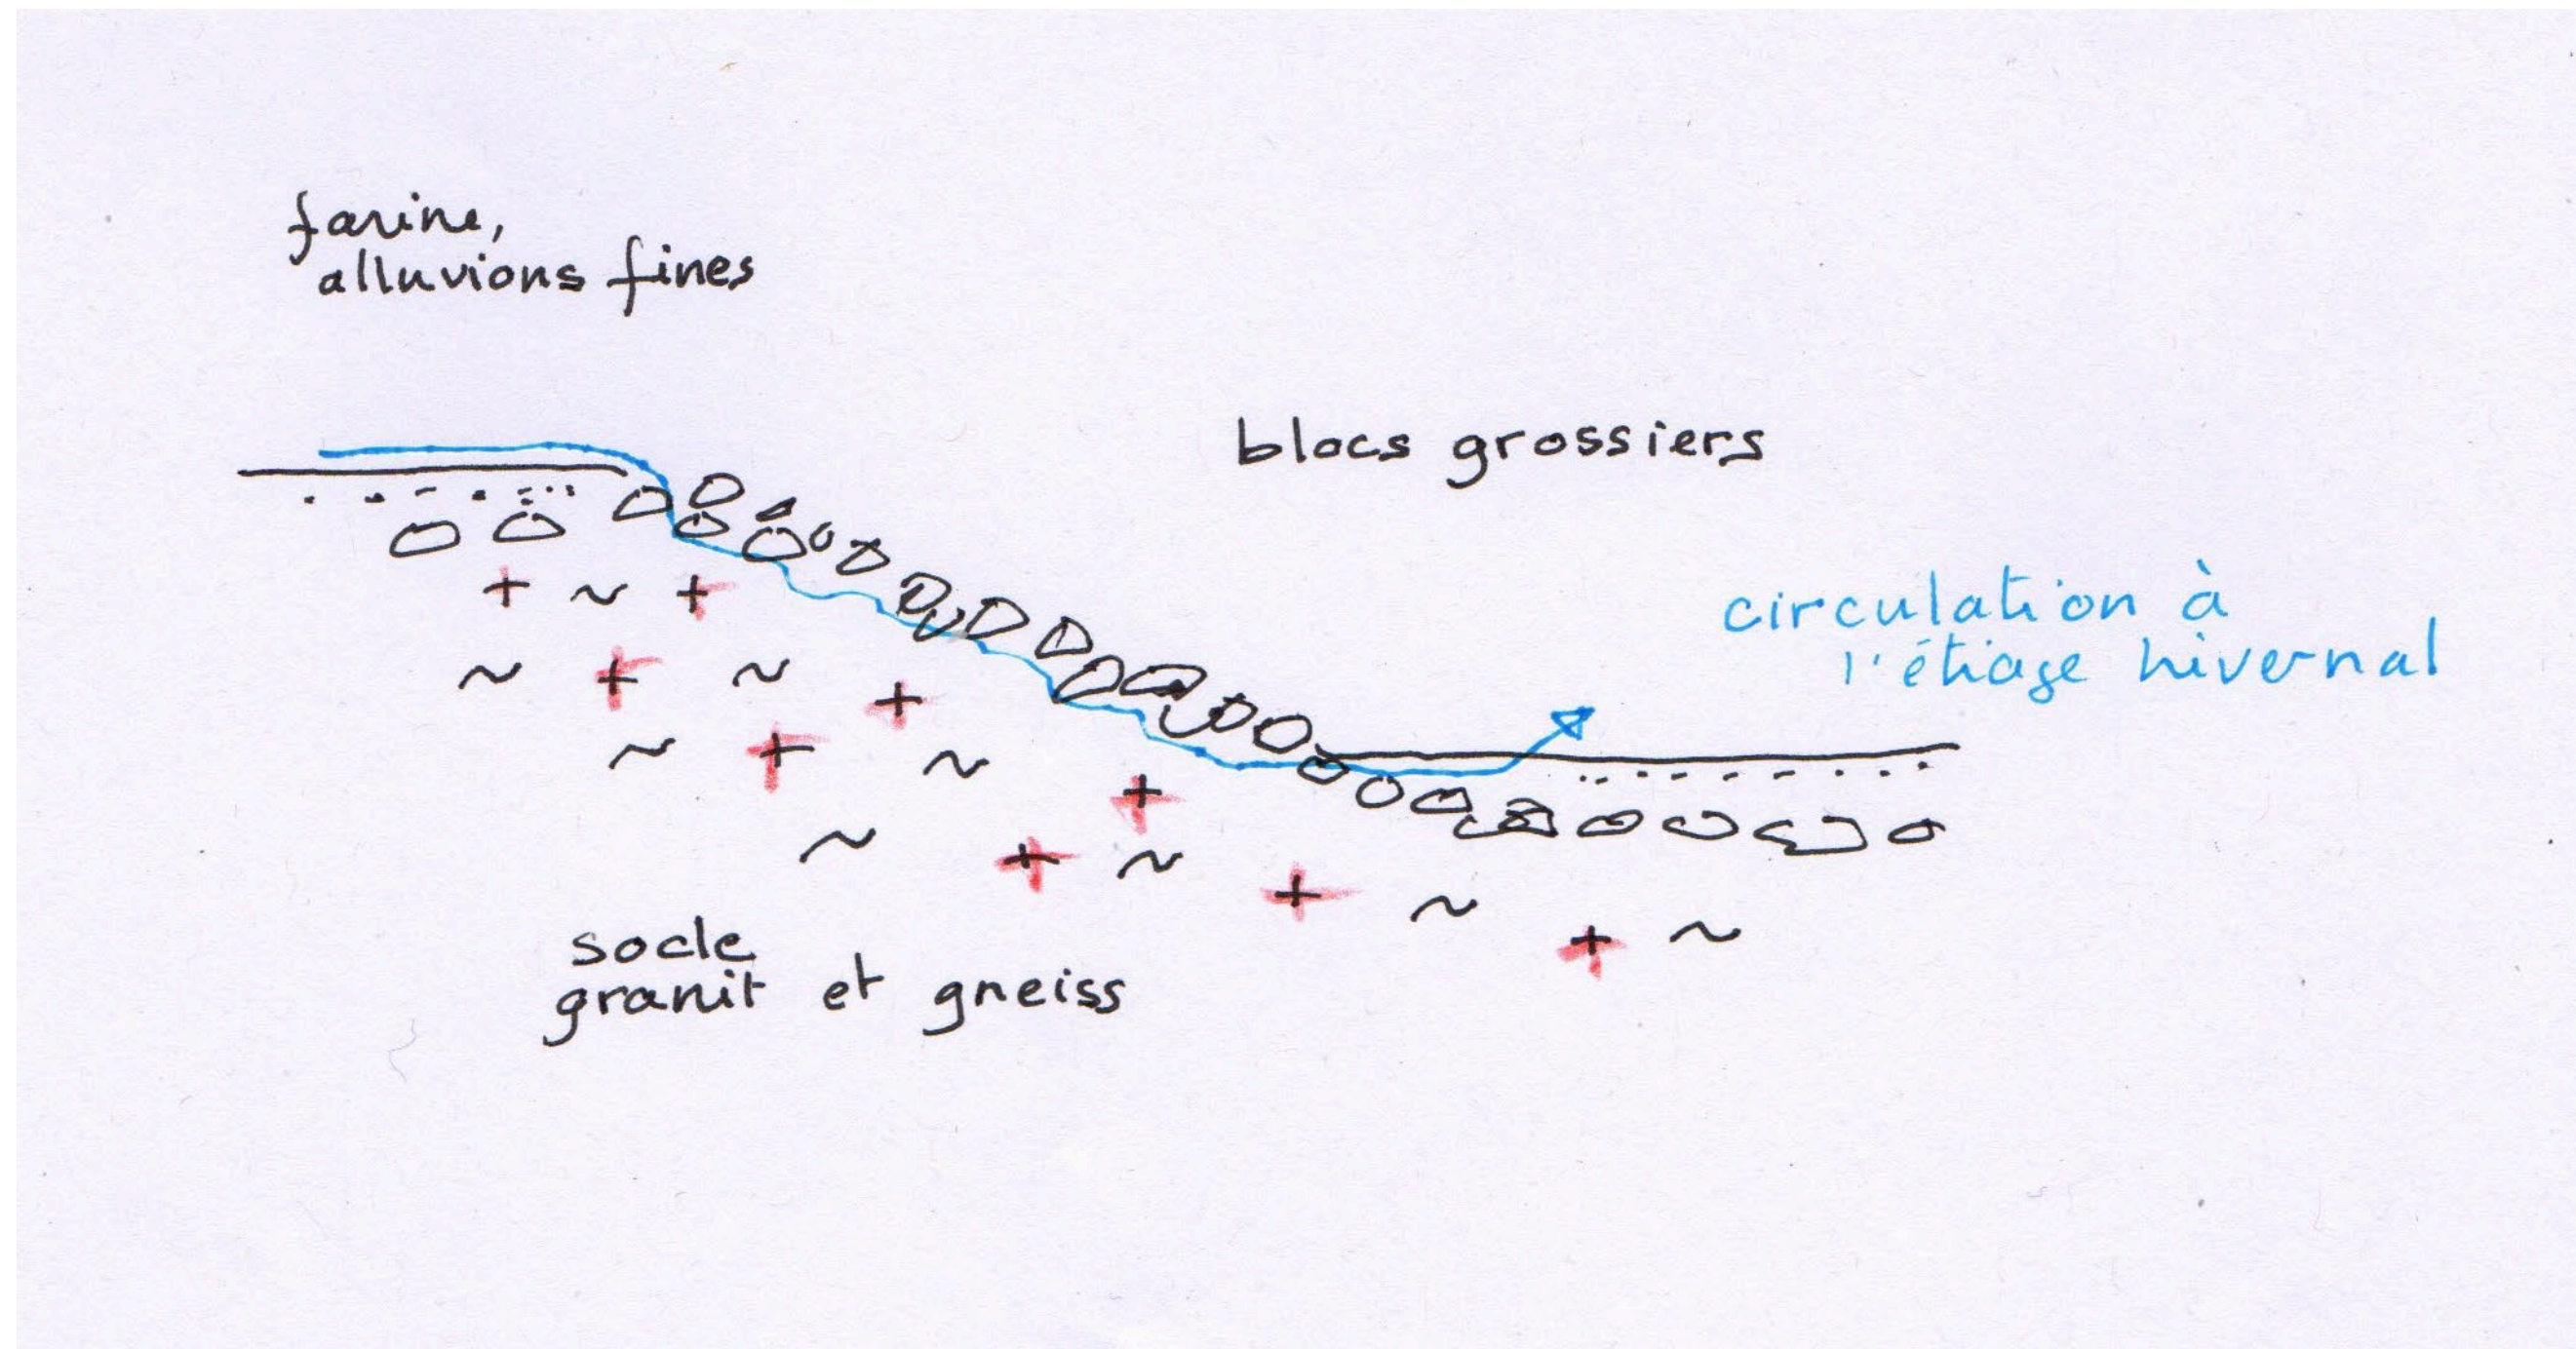 farine,
alluvions fines
blocs grossiers
circulation à
l'étiage hivernal
socle
granit et gneiss